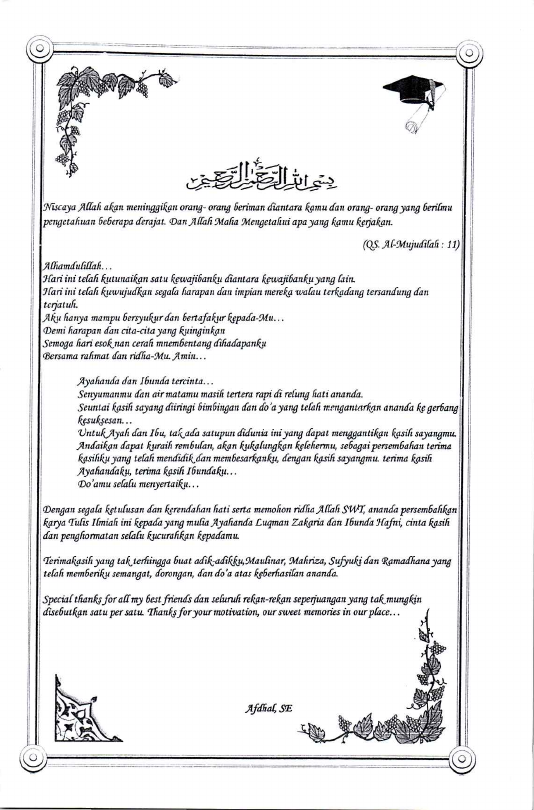 بسم الله الرحمن الرحيم
Niscaya Allah akan meninggikan orang- orang beriman diantara kamu dan orang- orang yang berilmu
pengetahuan beberapa derajat. Dan Allah Maha Mengetahui apa yang kamu kerjakan.
(QS. Al-Mujudilah : 11)
Alhamdulillah…
Hari ini telah kutunaikan satu kewajibanku diantara kewajibanku yang lain.
Hari ini telah kuwujudkan segala harapan dan impian mereka walau terkadang tersandung dan
terjatuh.
Aku hanya mampu bersyukur dan bertafakur kepada-Mu…
Demi harapan dan cita-cita yang kuinginkan
Semoga hari esok nan cerah mnembentang dihadapanku
Bersama rahmat dan ridha-Mu. Amin…
Ayahanda dan Ibunda tercinta…
Senyumanmu dan air matamu masih tertera rapi di relung hati ananda.
Seuntai kasih sayang diiringi bimbingan dan do'a yang telah mengantarkan ananda ke gerbang
kesuksesan…
Untuk Ayah dan Ibu, tak ada satupun didunia ini yang dapat menggantikan kasih sayangmu.
Andaikan dapat kuraih rembulan, akan kukalungkan kelehermu, sebagai persembahan terima
kasihku yang telah mendidik dan membesarkanku, dengan kasih sayangmu. terima kasih
Ayahandaku, terima kasih Ibundaku…
Do'amu selalu menyertaiku…
Dengan segala ketulusan dan kerendahan hati serta memohon ridha Allah SWT, ananda persembahkan
karya Tulis Ilmiah ini kepada yang mulia Ayahanda Luqman Zakaria dan Ibunda Hafni, cinta kasih
dan penghormatan selalu kucurahkan kepadamu.
Terimakasih yang tak terhingga buat adik-adikku,Maulinar, Mahriza, Sufyuki dan Ramadhana yang
telah memberiku semangat, dorongan, dan do'a atas keberhasilan ananda.
Special thanks for all my best friends dan seluruh rekan-rekan seperjuangan yang tak mungkin
disebutkan satu per satu. Thanks for your motivation, our sweet memories in our place…
Afdhal, SE